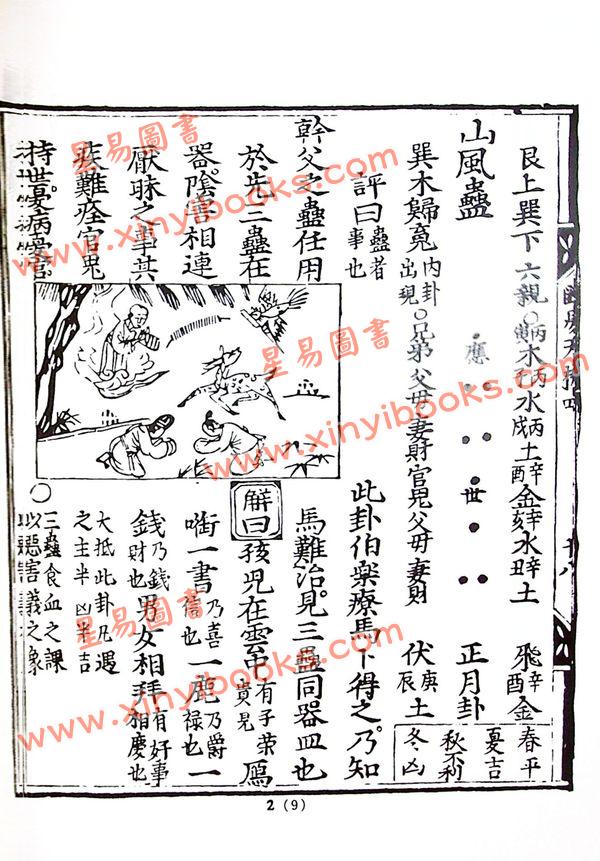 艮上巽下 六親○丙寅木丙子水丙戌土辛酉金辛亥水辛丑土 飛辛酉金
山風蠱 應 世 正月卦
巽木歸䰟內卦出現○兄弟父母妻財官鬼父母妻財 伏庚辰土
春平
夏吉
秋不利
冬凶
評曰蠱者事也
幹父之蠱任用
於先三蠱在
器陰害相連
厭昧之事共
疾難痊官鬼
持世憂病
此卦伯樂療馬卜得之乃知
馬難治見三蠱同器皿也
解曰 孩児在雲中有子榮貴見 鴈
啣一書乃喜信也一鹿乃爵祿也一
錢乃錢財也男女相拜有好事相慶也
大抵此卦凡遇
之主半凶半吉
○
三蠱食血之課
以惡害義之象
2 (9)
星易圖書
www.xinyibooks.com
星易圖書
www.xinyibooks.com
星易圖書
www.xinyibooks.com